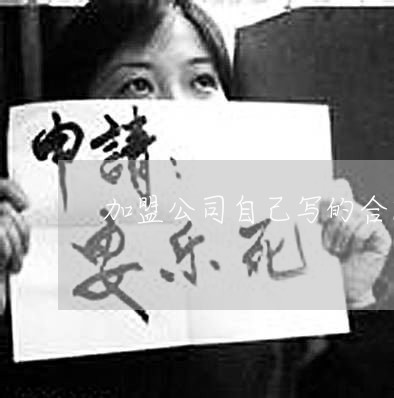 申請：
加盟公司自己写的合
要乐死